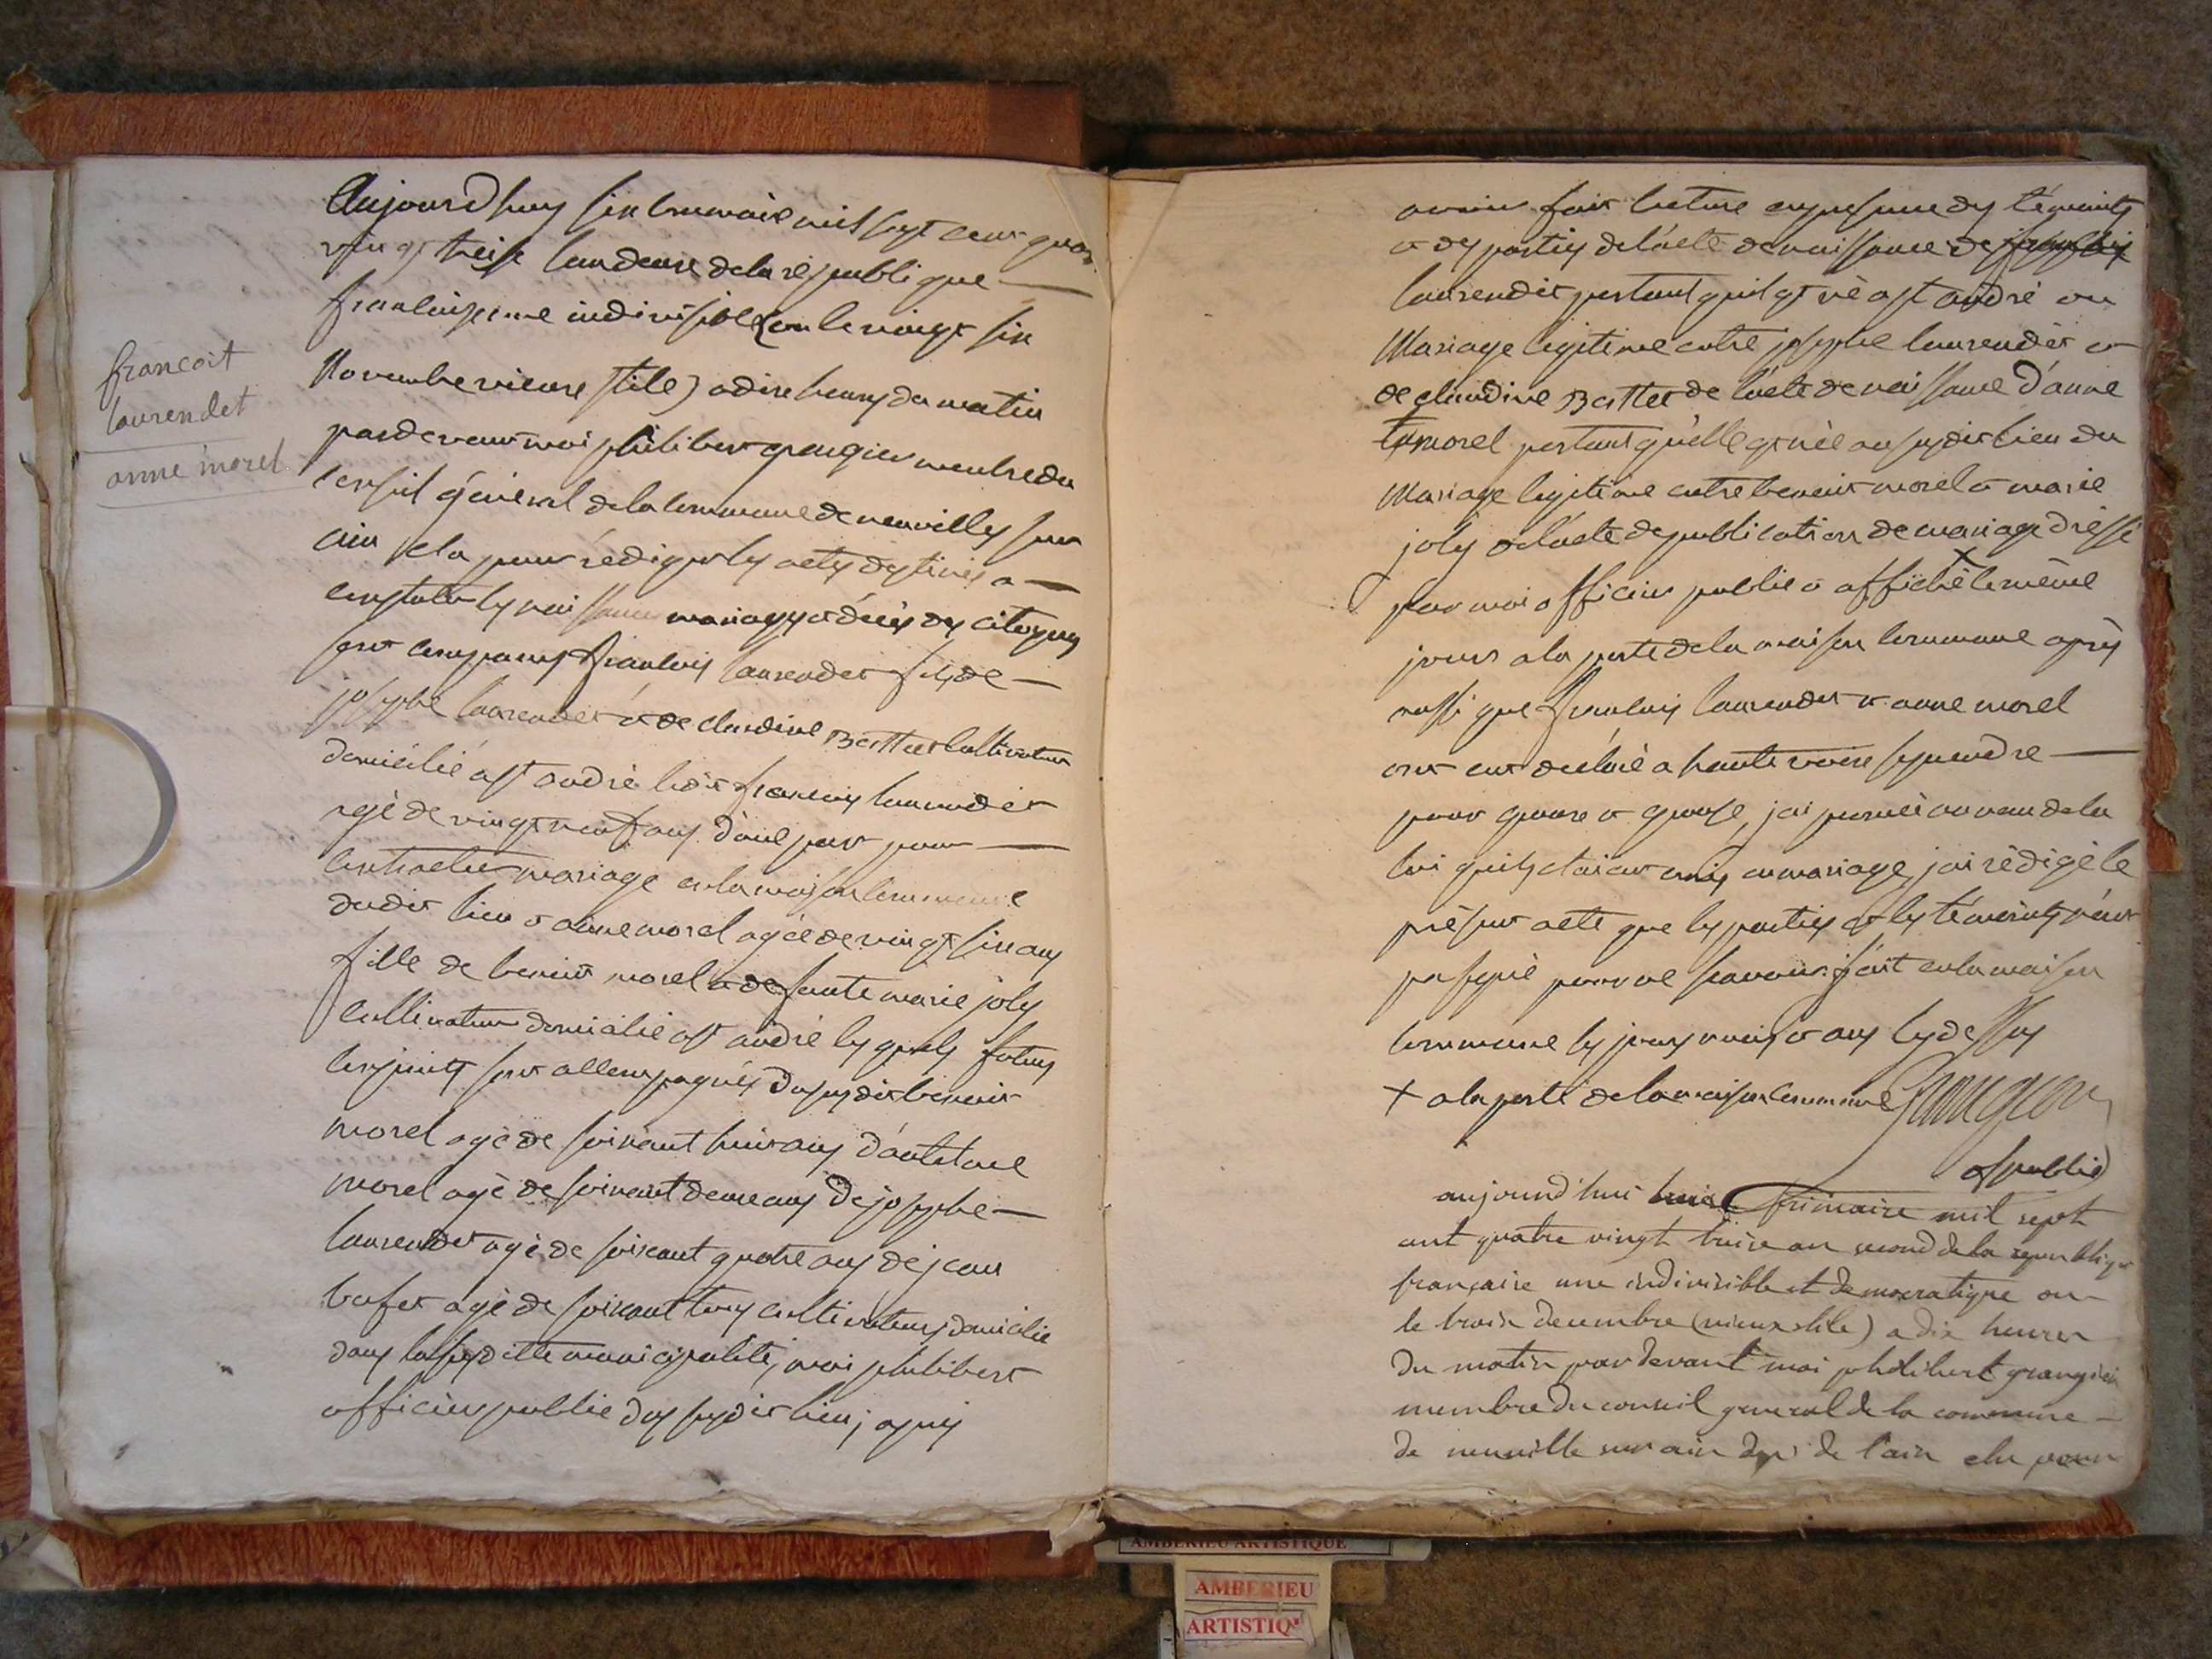 francoit
laurendet
anne morel
Aujourdhuy six brumaire mil sept cent quatre
vingt treise landeuse dela republique
francaise une indivisible (ou le vingt six
Novembre vieure stile) a dix heurs du matin
pardevant moi philibert grangier membre du
conseil géneral de la commune de neuville sur
ain elu pour rediger les actes destinés a
constater les naissances mariages et décès des citoyens
sont comparus francois laurendet fils de
josephe laurendet et de claudine Bottet cultivateur
domicilié a st andré ledit francois laurendet
agé de vingt neuf ans d'une part pour
contracter mariage en la maison commune
dudit lieu et anne morel agée de vingt six ans
fille de benoit morel et de faute marie joly
cultivateur domicilié a st andré lesquels futurs
conjoints sont accompagnés du susdit benoit
morel agé de soixant huit ans d'antoine
morel agé de soixant deux ans de josephe
laurendet agé de soixant quatre ans de jean
agé de soixant cultivateurs domicilié
dans la susditte municipalité, moi philibert
officier public du susdit lieu, apres
avoir fait lecture en presence des témoints
et des parties de l'acte de naissance de francois
laurendet portant quil est né a st andré du
Mariage legitime entre josephe laurendet et
de claudine Bottet de l'acte de naissance d'anne
morel portant qu'elle est née au susdit lieu du
Mariage legitime entre benoit morel et marie
joly de l'acte de publication de mariage dressé
par moi officier public et affiché × le même
jours a la porte de la maison commune après
aussi que francois laurendet et anne morel
ont eut declaré a haute voix se prendre
pour epoux et epouse, jai prononcé au nom de la
loi quils etaient unis en mariage, jai rédigé le
présent acte que les parties et les témoints n'ont
pas signé pour ne savoir. fait en la maison
commune les jours mois et ans cydessus
× a la porte de la maison commune Grangier
of public
aujourd'hui huit frimaire mil sept
cent quatre vingt treise an second de la republique
française une indivisible et democratique ou
le trois decembre (vieux stile) a dix heures
du matin par devant moi philibert grangier
membre du conseil general de la commune
de neuville sur ain dep. de l'ain elu pour
AMBERIEU ARTISTIQUE
AMBERIEU
ARTISTIQ